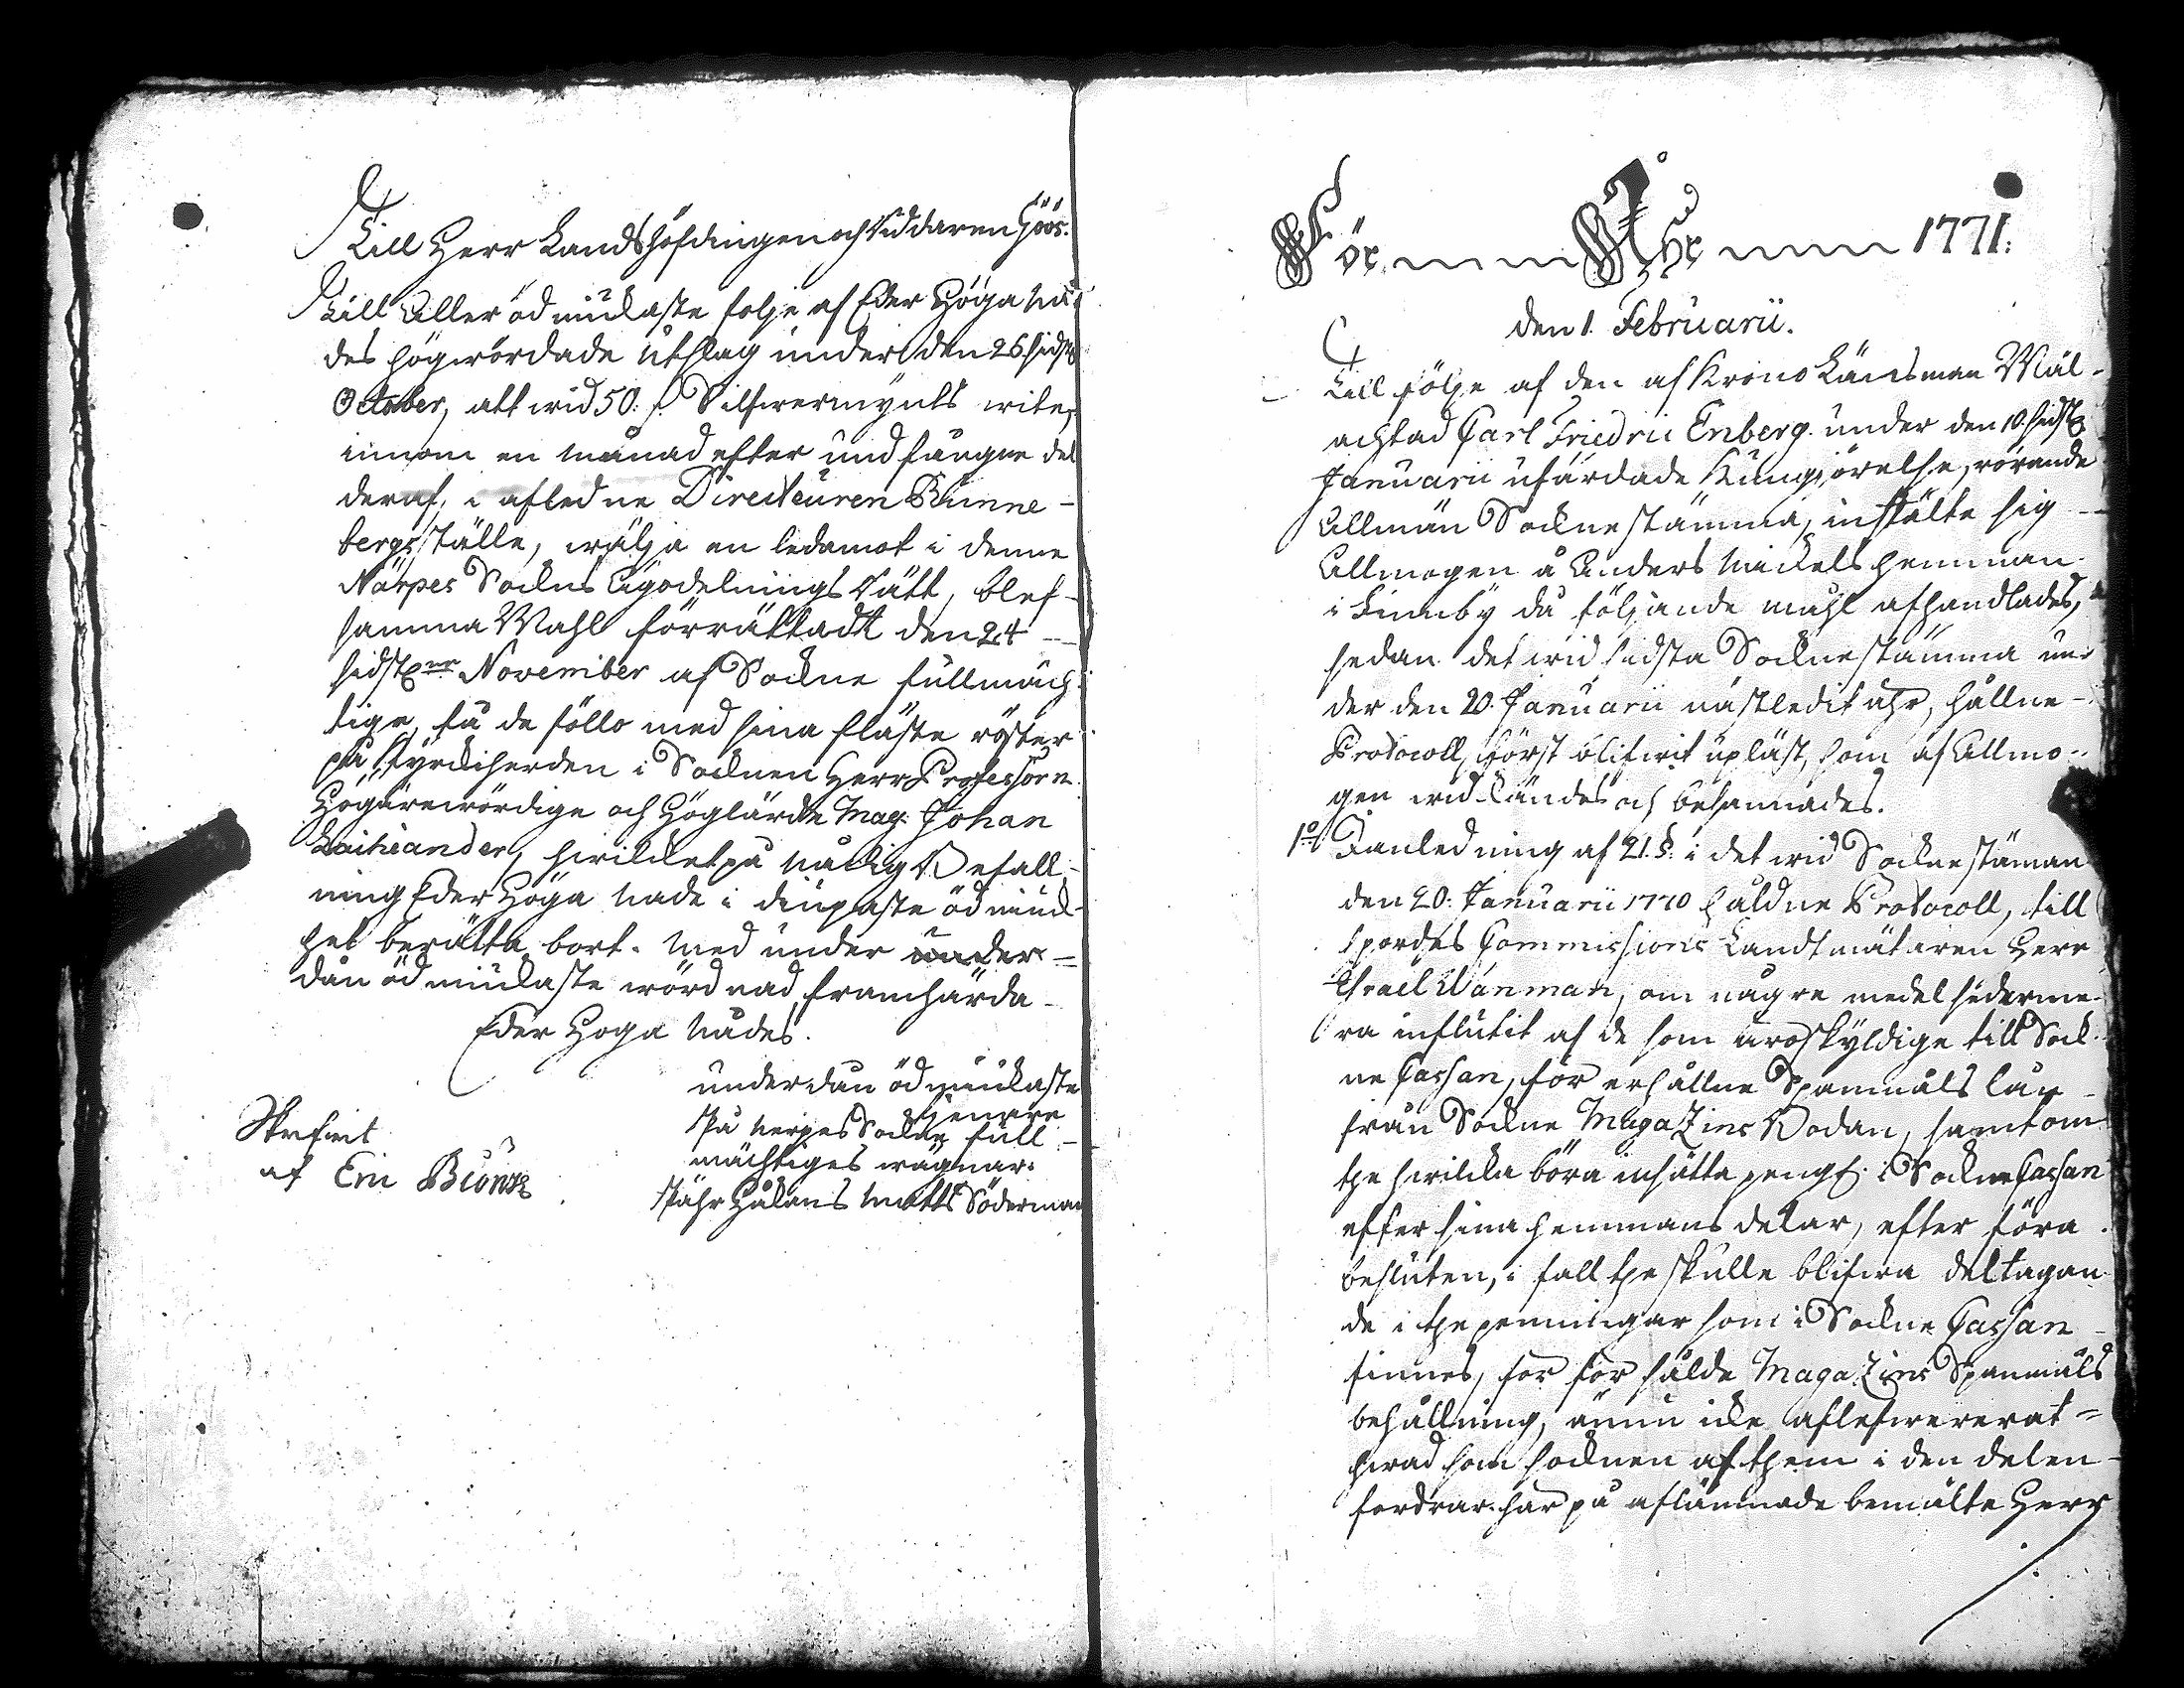 Till Herr Landshöfdingen och Riddaren Höös.
Till Aller ödmiukaste folje af Eder Höga Nå-
des högwördade Uthslag under den 26 sidstl.
October, att wid 50: s. Silfwermynts wite,
innom en månad efter undfången del
deraf, i afledne Directeuren Runne-
bergs ställe, wälja en ledamot i denne
Närpes Sockns Ägodelnings Rätt, blef
samma Wahl förrättadt den 24
sidstl. November af Sockne fullmäch-
tige, få de föllo med sina fläste röster
på Kyrckiherden i Socknen Herr Professorn
Högärewördige och Höglärde Mag. Johan
hwilcket på Nådig Befall-
ning Eder Höga Nåde i diupaste ödmiuk-
het berätta bort. Med under under-
dån ödmiukaste wördnad framhärda
Eder Höga Nådes.
underdån ödmiukaste
tjenare
På Nerpes Sockn full-
mächtiges wägnar.
Pähr Hålans Matts Söderman
Skrifwit
af Eric Biönk
För Åhr 1771.
den 1. Februarii.
Till följe af den af Krono Länsman Wäl-
achtad Carl Friedric Enberg under den 10. sidstl.
Januarii utfärdade Kungjörelse, rörande
Allmän Sockne stämma, instälte sig
Allmogen å Anders Mickels hemman
i Finnby då följande måhl afhandlades,
sedan det wid sidsta Socknestämma un-
der den 20. Januarii nästledit åhr, hållne
Protocoll, först blifwit upläst, som af Allmo-
gen wid-kändes och besannades.
1o I anledning af 21. §. i det wid Sockne stäman
den 20. Januarii 1770 håldne Protocoll, till
spordes Commissions Landtmätaren Herr
Esrael Wänman, om någre medel sederme-
ra influtit af de som äro skyldige till Sock-
ne Cassan, för erhållne Spanmåls lån
från Sockne Magazins Bodan, samt om
the hwilcka böra insätta pengl. i Sockne Cassan
efter sina hemmans delar, efter föra
besluten, i fall the skulle blifwa deltagan-
de i the penningar som i Sockne Cassan
finnes, for försålde Magazins Spanmåls
behållning, ännu icke aflefwererat
hwad som socknen af them i den delen
fordrar. har på aflämnade bemälte Herr